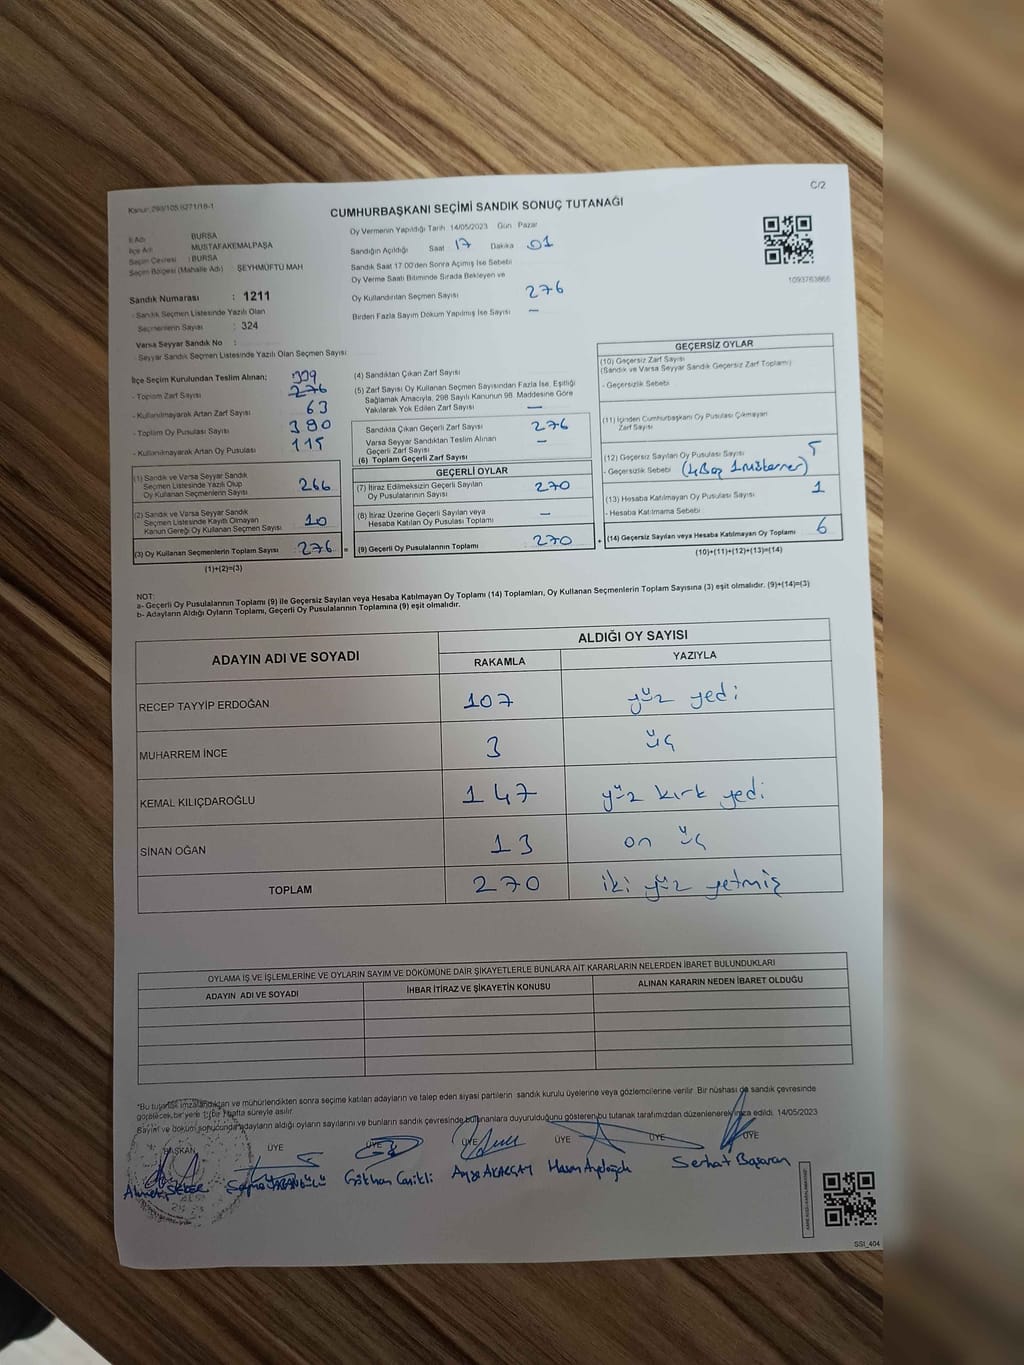 C/2
Kanun: 298/105, 6271/18-1
CUMHURBAŞKANI SEÇİMİ SANDIK SONUÇ TUTANAĞI
İl Adı : BURSA
İlçe Adı : MUSTAFAKEMALPAŞA
Seçim Çevresi : BURSA
Seçim Bölgesi (Mahalle Adı) : ŞEYHMÜFTÜ MAH
Sandık Numarası : 1211
- Sandık Seçmen Listesinde Yazılı Olan
Seçmenlerin Sayısı : 324
Varsa Seyyar Sandık No :
- Seyyar Sandık Seçmen Listesinde Yazılı Olan Seçmen Sayısı
Oy Vermenin Yapıldığı Tarih 14/05/2023 Gün Pazar
Sandığın Açıldığı Saat 17 Dakika 01
Sandık Saat 17:00'den Sonra Açılmış İse Sebebi
Oy Verme Saati Bitiminde Sırada Bekleyen ve
Oy Kullandırılan Seçmen Sayısı 276
Birden Fazla Sayım Döküm Yapılmış İse Sayısı —
1093763866
İlçe Seçim Kurulundan Teslim Alınan; 339
- Toplam Zarf Sayısı 276
- Kullanılmayarak Artan Zarf Sayısı 63
- Toplam Oy Pusulası Sayısı 390
- Kullanılmayarak Artan Oy Pusulası 115
(1) Sandık ve Varsa Seyyar Sandık
Seçmen Listesinde Yazılı Olup
Oy Kullanan Seçmenlerin Sayısı 266
(2) Sandık ve Varsa Seyyar Sandık
Seçmen Listesinde Kayıtlı Olmayan
Kanun Gereği Oy Kullanan Seçmen Sayısı 10
(3) Oy Kullanan Seçmenlerin Toplam Sayısı 276 =
(1)+(2)=(3)
(4) Sandıktan Çıkan Zarf Sayısı
(5) Zarf Sayısı Oy Kullanan Seçmen Sayısından Fazla İse, Eşitliği
Sağlamak Amacıyla, 298 Sayılı Kanunun 98. Maddesine Göre
Yakılarak Yok Edilen Zarf Sayısı —
Sandıkta Çıkan Geçerli Zarf Sayısı 276
Varsa Seyyar Sandıktan Teslim Alınan
Geçerli Zarf Sayısı —
(6) Toplam Geçerli Zarf Sayısı
GEÇERLİ OYLAR
(7) İtiraz Edilmeksizin Geçerli Sayılan
Oy Pusulalarının Sayısı 270
(8) İtiraz Üzerine Geçerli Sayılan veya
Hesaba Katılan Oy Pusulası Toplamı —
(9) Geçerli Oy Pusulalarının Toplamı 270 +
GEÇERSİZ OYLAR
(10) Geçersiz Zarf Sayısı
(Sandık ve Varsa Seyyar Sandık Geçersiz Zarf Toplamı)
- Geçersizlik Sebebi
(11) İçinden Cumhurbaşkanı Oy Pusulası Çıkmayan
Zarf Sayısı
(12) Geçersiz Sayılan Oy Pusulası Sayısı 5
- Geçersizlik Sebebi (4 Boş 1 Mükerrer)
(13) Hesaba Katılmayan Oy Pusulası Sayısı 1
- Hesaba Katılmama Sebebi
(14) Geçersiz Sayılan veya Hesaba Katılmayan Oy Toplamı 6
(10)+(11)+(12)+(13)=(14)
NOT:
a- Geçerli Oy Pusulalarının Toplamı (9) ile Geçersiz Sayılan veya Hesaba Katılmayan Oy Toplamı (14) Toplamları, Oy Kullanan Seçmenlerin Toplam Sayısına (3) eşit olmalıdır. (9)+(14)=(3)
b- Adayların Aldığı Oyların Toplamı, Geçerli Oy Pusulalarının Toplamına (9) eşit olmalıdır.
ADAYIN ADI VE SOYADI ALDIĞI OY SAYISI
RAKAMLA YAZIYLA
RECEP TAYYİP ERDOĞAN 107 yüz yedi
MUHARREM İNCE 3 üç
KEMAL KILIÇDAROĞLU 147 yüz kırk yedi
SİNAN OĞAN 13 on üç
TOPLAM 270 iki yüz yetmiş
OYLAMA İŞ VE İŞLEMLERİNE VE OYLARIN SAYIM VE DÖKÜMÜNE DAİR ŞİKAYETLERLE BUNLARA AİT KARARLARIN NELERDEN İBARET BULUNDUKLARI
ADAYIN ADI VE SOYADI İHBAR İTİRAZ VE ŞİKAYETİN KONUSU ALINAN KARARIN NEDEN İBARET OLDUĞU
"Bu tutanak imzalandıktan ve mühürlendikten sonra seçime katılan adayların ve talep eden siyasi partilerin sandık kurulu üyelerine veya gözlemcilerine verilir. Bir nüshası da sandık çevresinde
görülecek bir yere 1 (bir) hafta süreyle asılır.
Sayım ve döküm sonucunda adayların aldığı oyların sayılarını ve bunların sandık çevresinde bulunanlara duyurulduğunu gösteren bu tutanak tarafımızdan düzenlenerek imza edildi. 14/05/2023
BAŞKAN ÜYE ÜYE ÜYE ÜYE ÜYE ÜYE
Ahmet ŞEKER Gökhan Canikli Ayşe AKAKÇAY Serhat Başaran
SSI_404